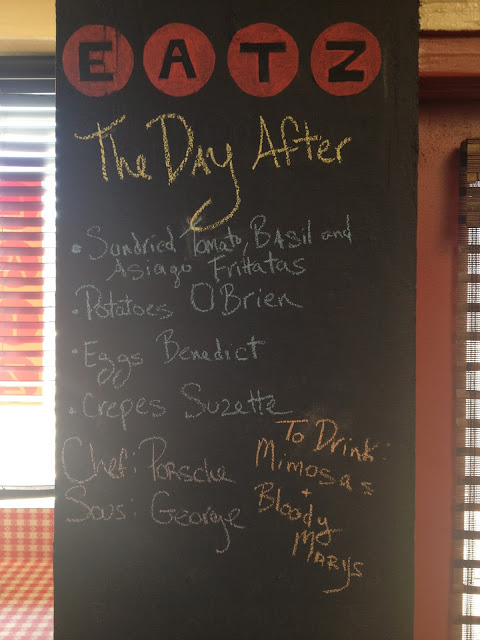 EATZ
The Day After
• Sundried Tomato, Basil and
Asiago Frittatas
• Potatoes O'Brien
• Eggs Benedict
• Crepes Suzette
Chef: Porsche
Sous: George
To Drink:
Mimosas
+
Bloody
Marys